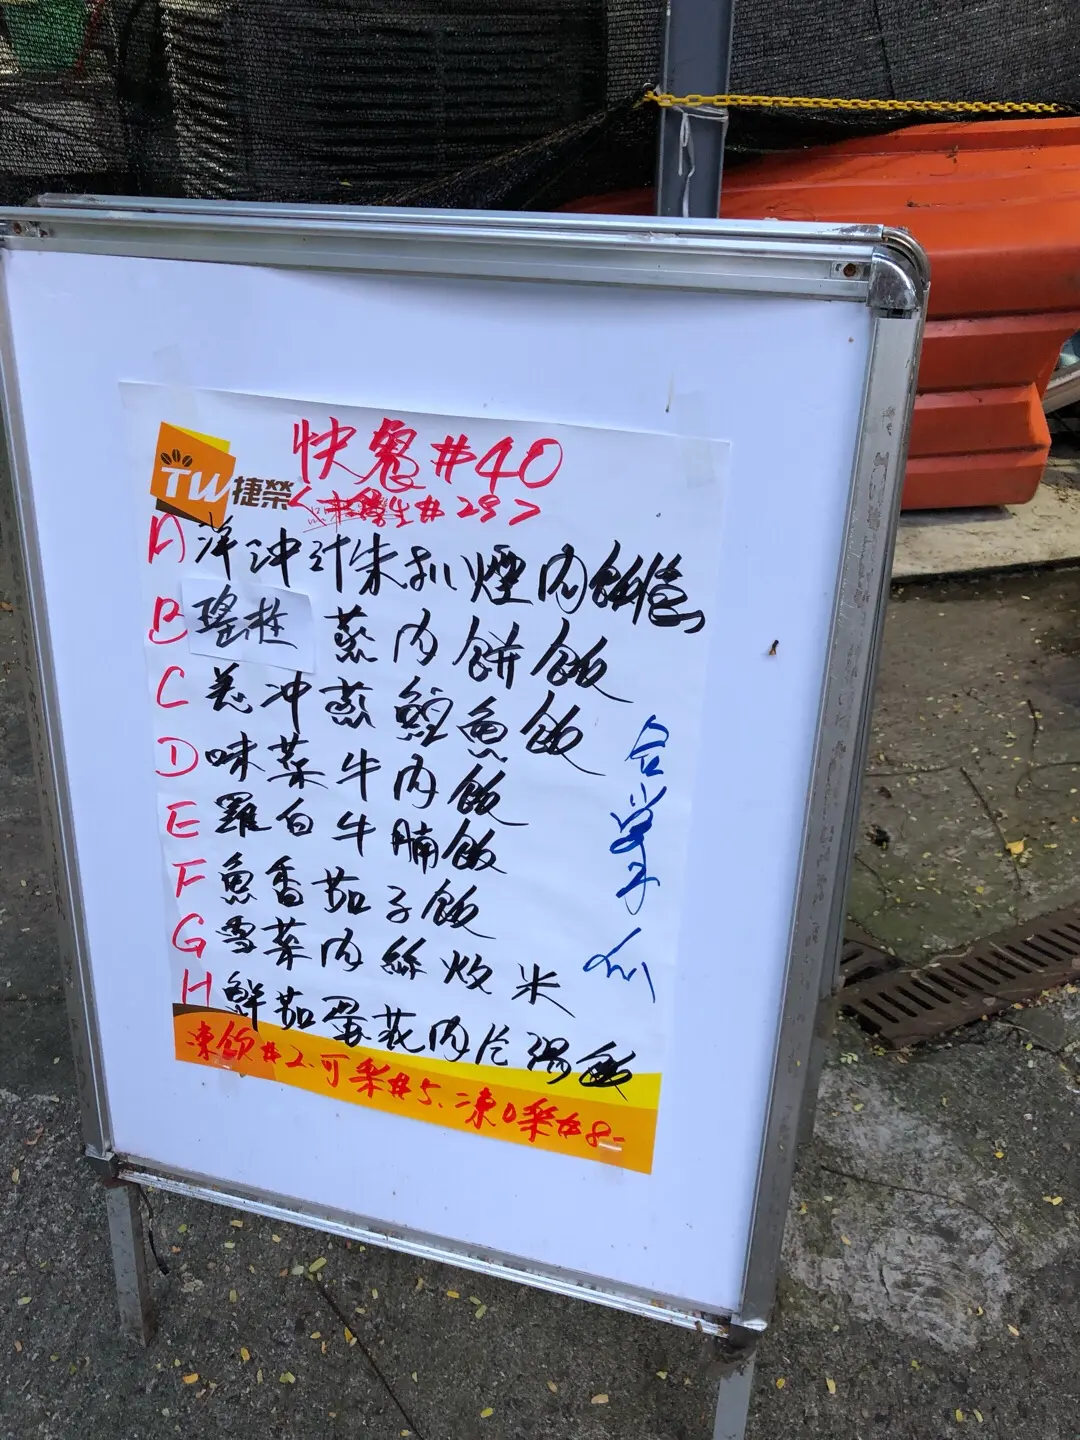 TW捷榮
快餐#40
學生#28>
A 洋沖汁朱扒煙肉飯
B 瑤柱 蒸肉餅飯
C 羌沖蒸鯇魚飯
D 味菜牛肉飯
E 羅白牛腩飯
F 魚香茄子飯
G 雪菜肉絲炆米
H 鮮茄蛋花肉片湯飯
凍飲#2.可樂#5.凍0樂#8-